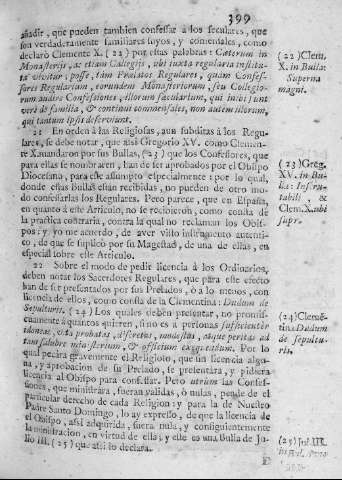 399
añadir, que pueden tambien confessar à los seculares, que
son verdaderamente familiares suyos, y comensales, como
declarò Clemente X. (22) por estas palabras: Cæterum in
Monasterijs, ac etiam Collegijs, ubi juxta regularia institu-
ta vivitur, posse, tàm Prælatos Regulares, quàm Confes-
sores Regularium, eorundem Monasteriorum, seu Collegio-
rum audire Confessiones, illorum sæcularium, qui inibi sunt
verè de familia, & continui commensales, non autem illorum,
qui tantùm ipsis deserviunt.
21 En orden à las Religiosas, aun subditas à los Regu-
lares, se debe notar, que assi Gregorio XV. como Clemen-
te X. mandaron por sus Bullas, (23) que los Confessores, que
para ellas se nombraren, han de ser aprobados por el Obispo
Diocesano, para este assumpto especialmente: por lo qual,
donde estas Bullas estàn recibidas, no pueden de otro mo-
do confessarlas los Regulares. Pero parece, que en España,
en quanto à este Articulo, no se recibieron, como consta de
la practica contraria, contra la qual no reclaman los Obis-
pos: y yo me acuerdo, de aver visto instrumento autenti-
co, de que se suplicò por su Magestad, de una de ellas, en
especial sobre este Articulo.
22 Sobre el modo de pedir licencia à los Ordinarios,
deben notar los Sacerdotes Regulares, que para este efecto
han de ser presentados por sus Prelados, ò à lo menos, con
licencia de ellos, como consta de la Clementina: Dudum de
Sepulturis. (24) Los quales deben presentar, no promis-
cuamente à quantos quieren, sino es à personas sufficienter
idoneas, vita probatas, discretas, modestas, atque peritas ad
tam salubre ministerium, & officium exequendum. Por lo
qual pecàra gravemente el Religioso, que sin licencia algu-
na, y aprobacion de su Prelado, se presentàra, y pidiera
licencia al Obispo para confessar. Pero utrùm las Confes-
siones, que ministràra, fueran validas, ò nulas, pende de el
particular derecho de cada Religion: y para la de Nuestro
Padre Santo Domingo, lo ay expresso, de que la licencia de
el Obispo, assi adquirida, fuera nula, y consiguientemente
la ministracion, en virtud de ella; y este es una Bulla de Ju-
lio III. (25) que assi lo declara.
(22) Clem.
X. in Bulla:
Superna
magni.
(23) Greg.
XV. in Bu-
lla: Inscru-
tabili, &
Clem. X. ubi
supr.
(24) Clemẽ-
tina Dudum
de sepultu-
ris.
(25) Jul. III.